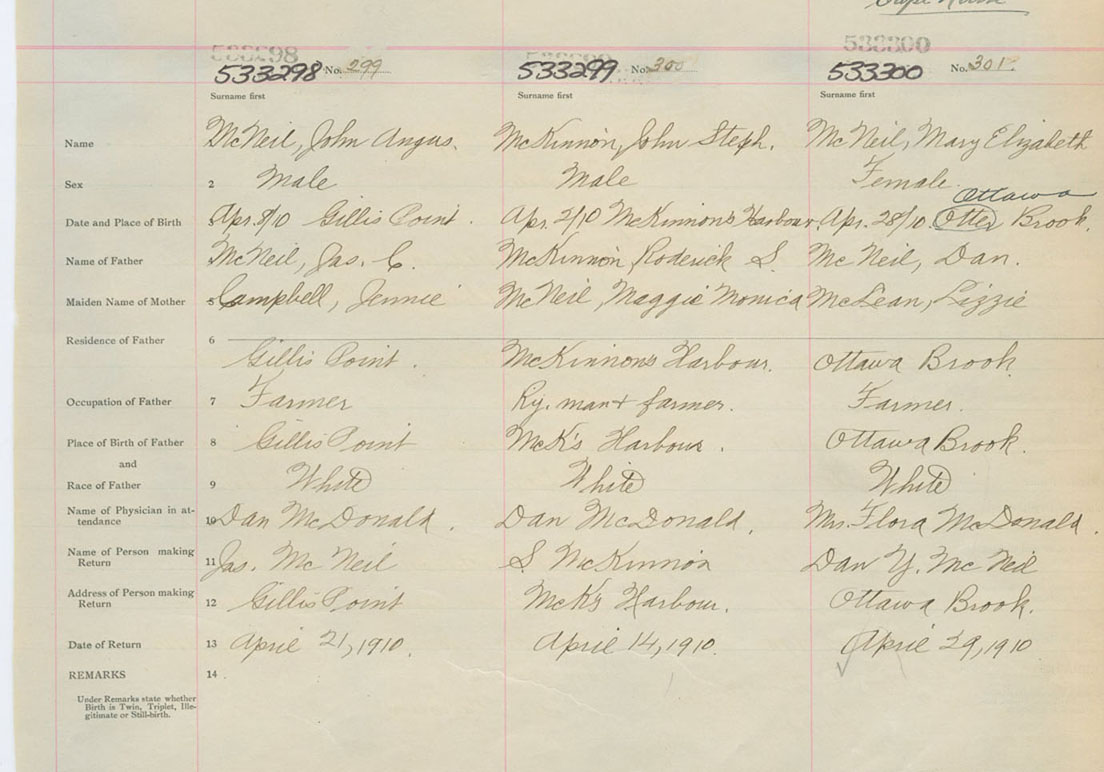 533300
533298 No. 299 533299 No. 300 533300 No. 301
Surname first Surname first Surname first
Name McNeil, John Angus. McKinnon, John Steph. McNeil, Mary Elizabeth
Sex 2 Male Male Female
Ottawa
Date and Place of Birth 3 Apr. 8/10 Gillis Point. Apr. 2/10 McKinnon's Harbour. Apr. 28/10. Otter Brook.
Name of Father McNeil, Jas. C. McKinnon, Roderick S. McNeil, Dan.
Maiden Name of Mother 5 Campbell, Jennie McNeil, Maggie Monica McLean, Lizzie
Residence of Father 6
Gillis Point. McKinnons Harbour. Ottawa Brook.
Occupation of Father 7 Farmer Ry. man + farmer. Farmer.
Place of Birth of Father 8 Gillis Point McK's Harbour. Ottawa Brook.
and
Race of Father 9 White White White
Name of Physician in at-
tendance 10 Dan McDonald. Dan McDonald. Mrs. Flora McDonald.
Name of Person making
Return 11 Jas. McNeil S McKinnon Dan Y. McNeil
Address of Person making
Return 12 Gillis Point McK's Harbour. Ottawa Brook.
Date of Return 13 April 21, 1910. April 14, 1910. April 29, 1910
REMARKS 14
Under Remarks state whether
Birth is Twin, Triplet, Ille-
gitimate or Still-birth.